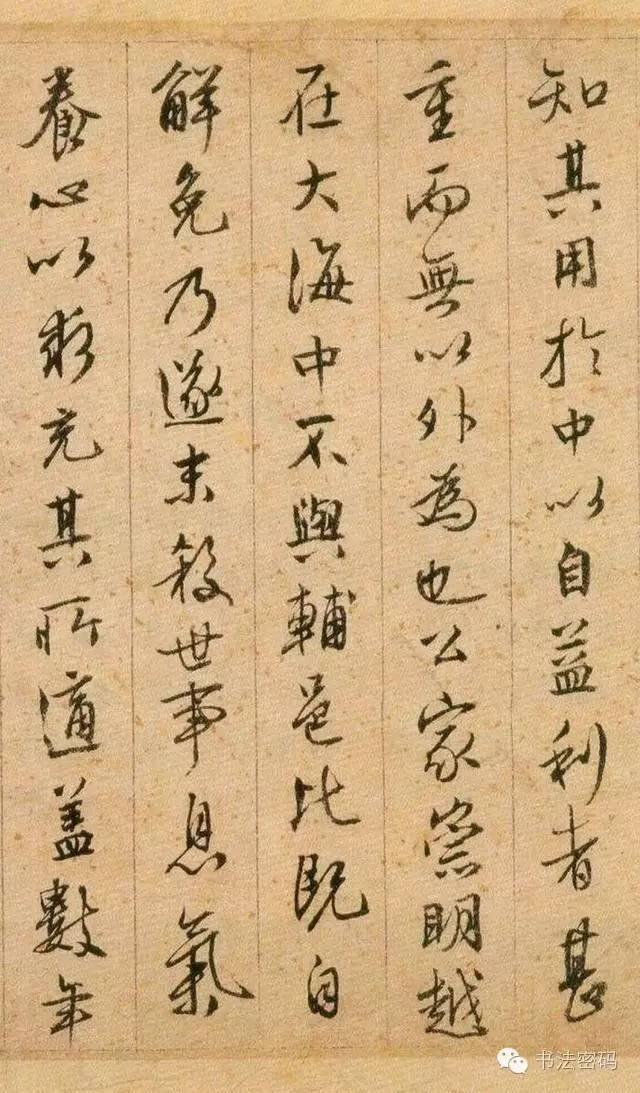 知其用於中以自益利者甚
重而無以外為也公家崇明越
在大海中不與輔邑比既自
解免乃遂末殺世事息氣
養心以求充其所適盖數年
书法密码